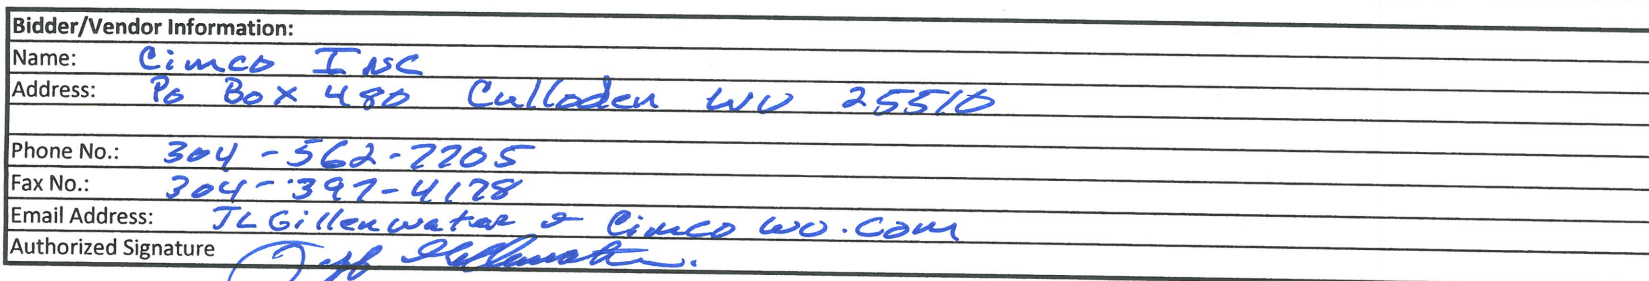 Bidder/Vendor Information:
Name: Cimco Inc
Address: Po Box 480 Culloden WV 25510
Phone No.: 304-562-7705
Fax No.: 304-397-4178
Email Address: JLGillenwater @ Cimco WV.Com
Authorized Signature Jeff Gillenwater